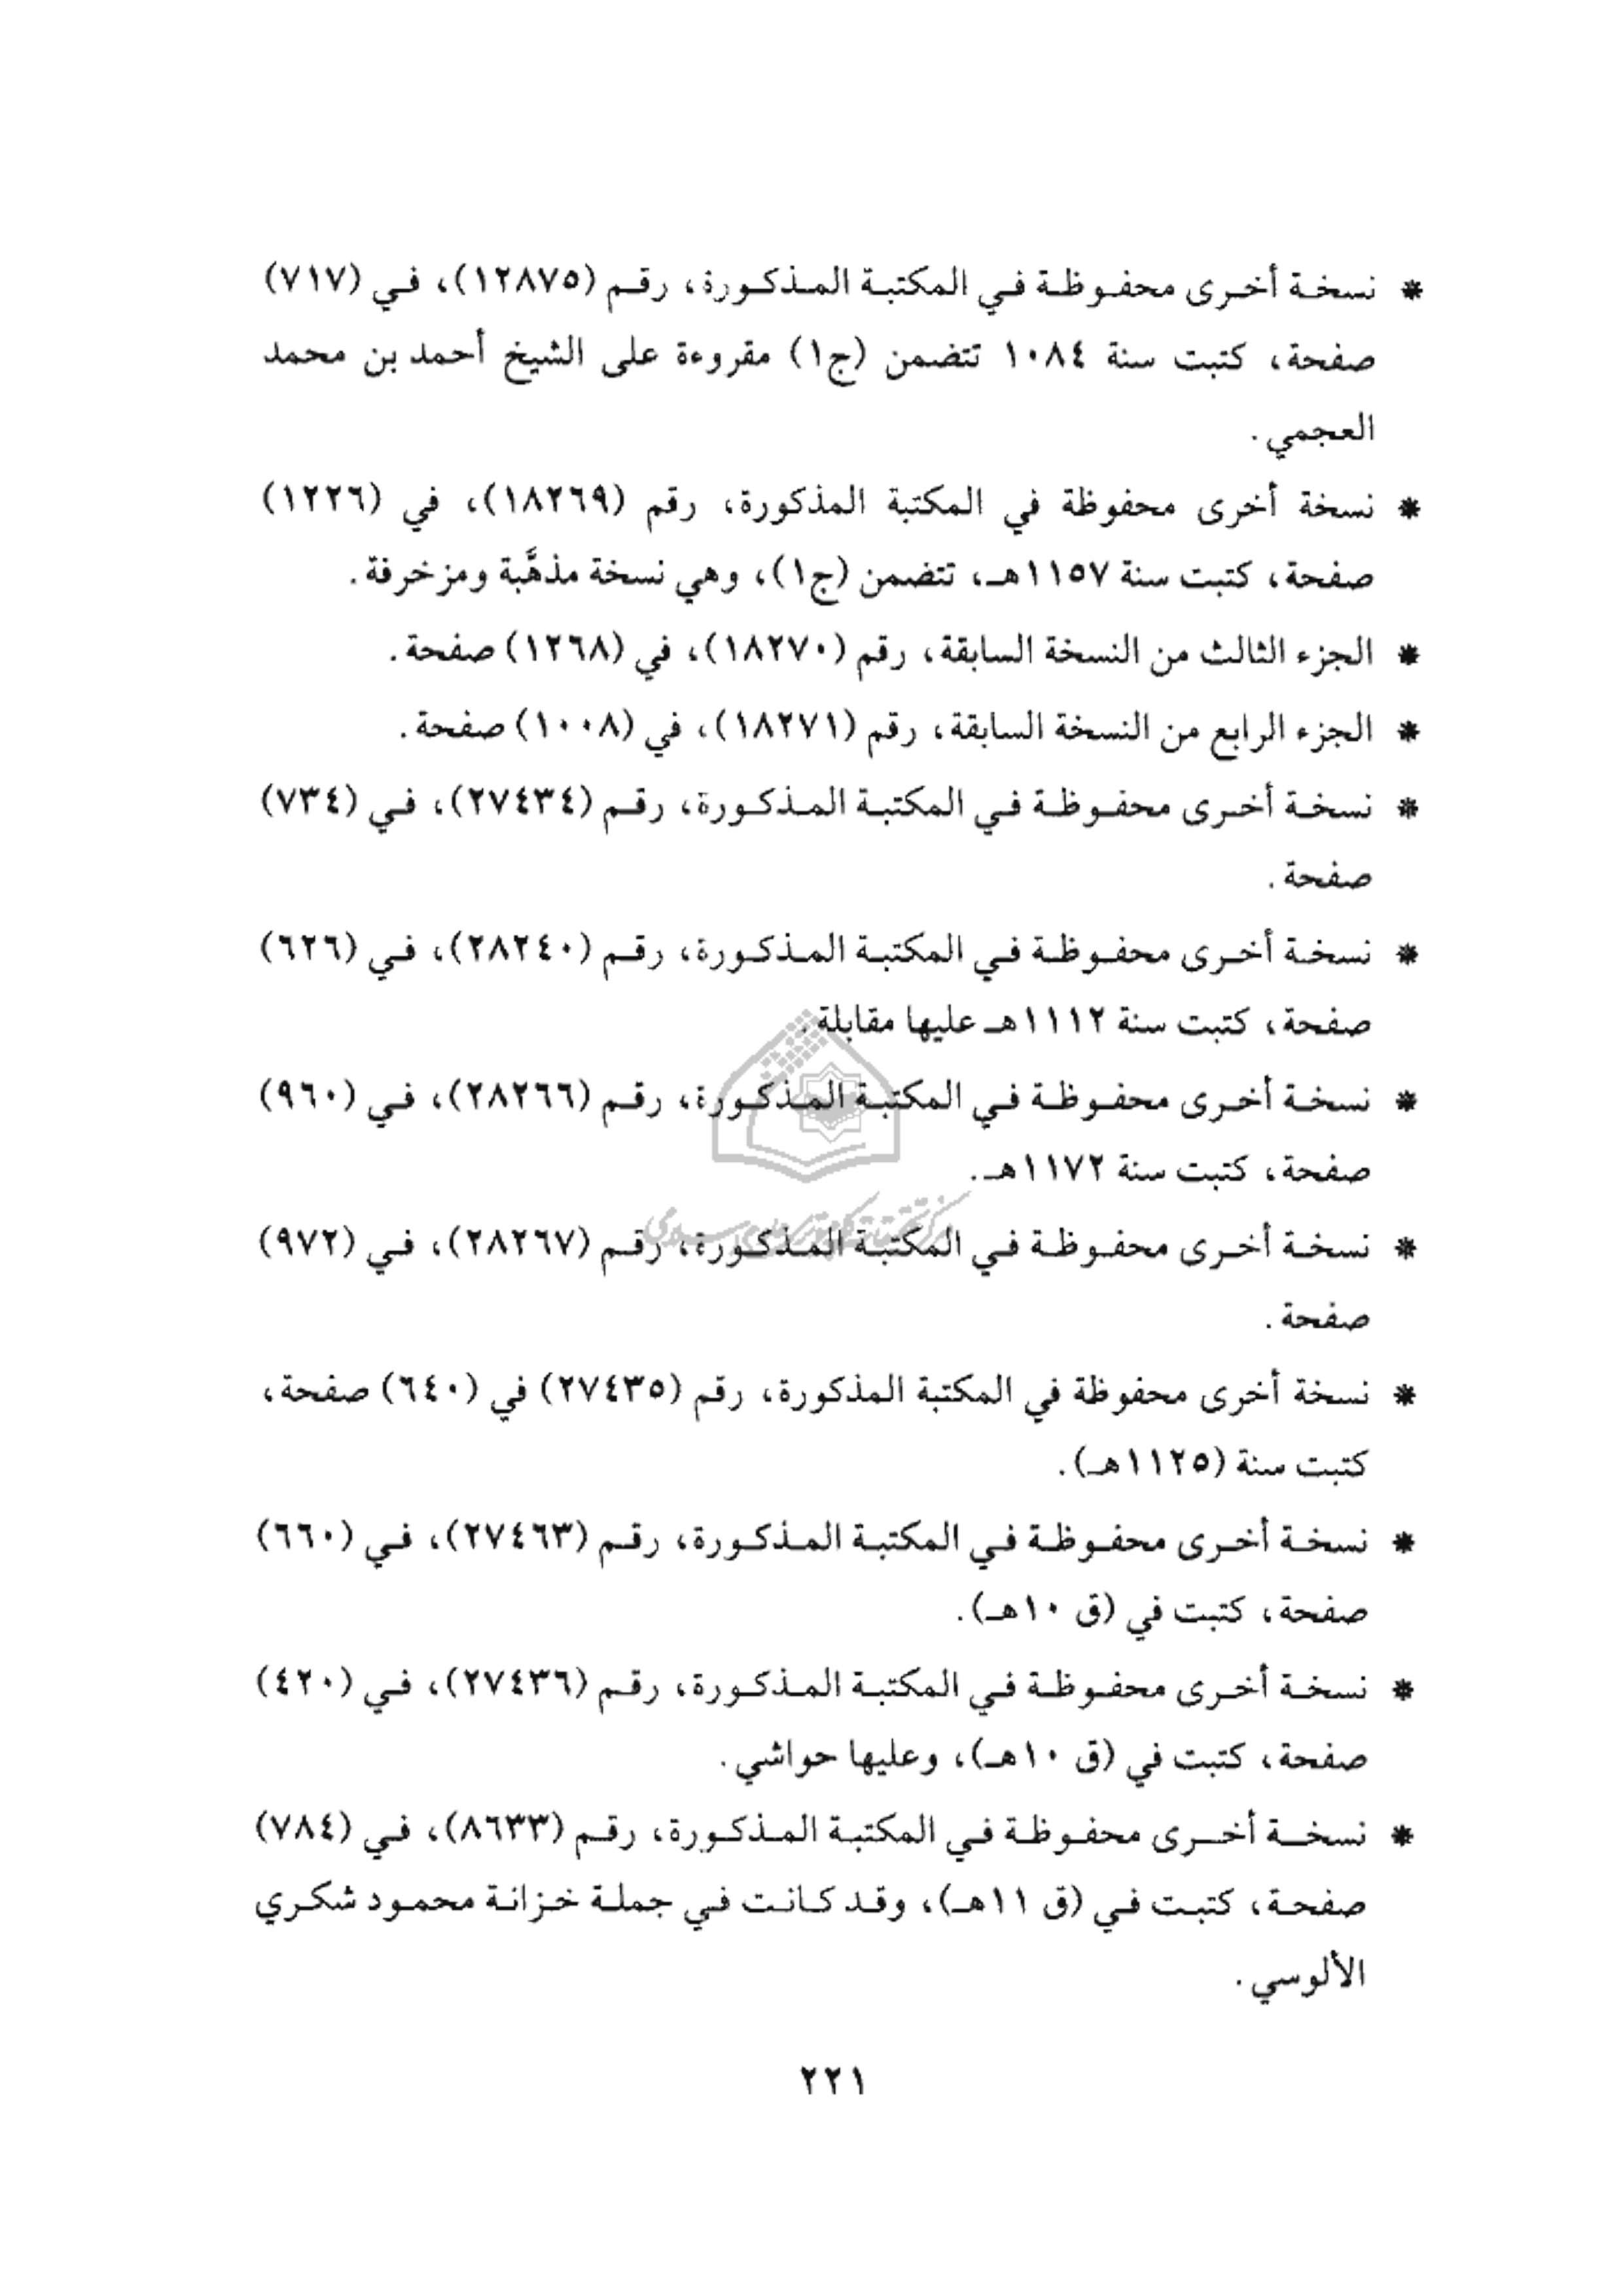 * نسخة أخرى محفوظة في المكتبة المذكورة، رقم (١٢٨٧٥)، في (٧١٧)
صفحة، كتبت سنة ١٠٨٤ تتضمن (ج١) مقروءة على الشيخ أحمد بن محمد
العجمي.
* نسخة أخرى محفوظة في المكتبة المذكورة، رقم (١٨٢٦٩)، في (١٢٢٦)
صفحة، كتبت سنة ١١٥٧هـ، تتضمن (ج١)، وهي نسخة مذهَّبة ومزخرفة.
* الجزء الثالث من النسخة السابقة، رقم (١٨٢٧٠)، في (١٢٦٨) صفحة.
* الجزء الرابع من النسخة السابقة، رقم (١٨٢٧١)، في (١٠٠٨) صفحة.
* نسخة أخرى محفوظة في المكتبة المذكورة، رقم (٢٧٤٣٤)، في (٧٣٤)
صفحة.
* نسخة أخرى محفوظة في المكتبة المذكورة، رقم (٢٨٢٤٠)، في (٦٢٦)
صفحة، كتبت سنة ١١١٢هـ عليها مقابلة.
* نسخة أخرى محفوظة في المكتبة المذكورة، رقم (٢٨٢٦٦)، في (٩٦٠)
صفحة، كتبت سنة ١١٧٢هـ.
* نسخة أخرى محفوظة في المكتبة المذكورة، رقم (٢٨٢٦٧)، في (٩٧٢)
صفحة.
* نسخة أخرى محفوظة في المكتبة المذكورة، رقم (٢٧٤٣٥) في (٦٤٠) صفحة،
كتبت سنة (١١٢٥هـ).
* نسخة أخرى محفوظة في المكتبة المذكورة، رقم (٢٧٤٦٣)، في (٦٦٠)
صفحة، كتبت في (ق ١٠هـ).
* نسخة أخرى محفوظة في المكتبة المذكورة، رقم (٢٧٤٣٦)، في (٤٢٠)
صفحة، كتبت في (ق ١٠هـ)، وعليها حواشي.
* نسخة أخرى محفوظة في المكتبة المذكورة، رقم (٨٦٣٣)، في (٧٨٤)
صفحة، كتبت في (ق ١١هـ)، وقد كانت في جملة خزانة محمود شكري
الألوسي.
٢٢١